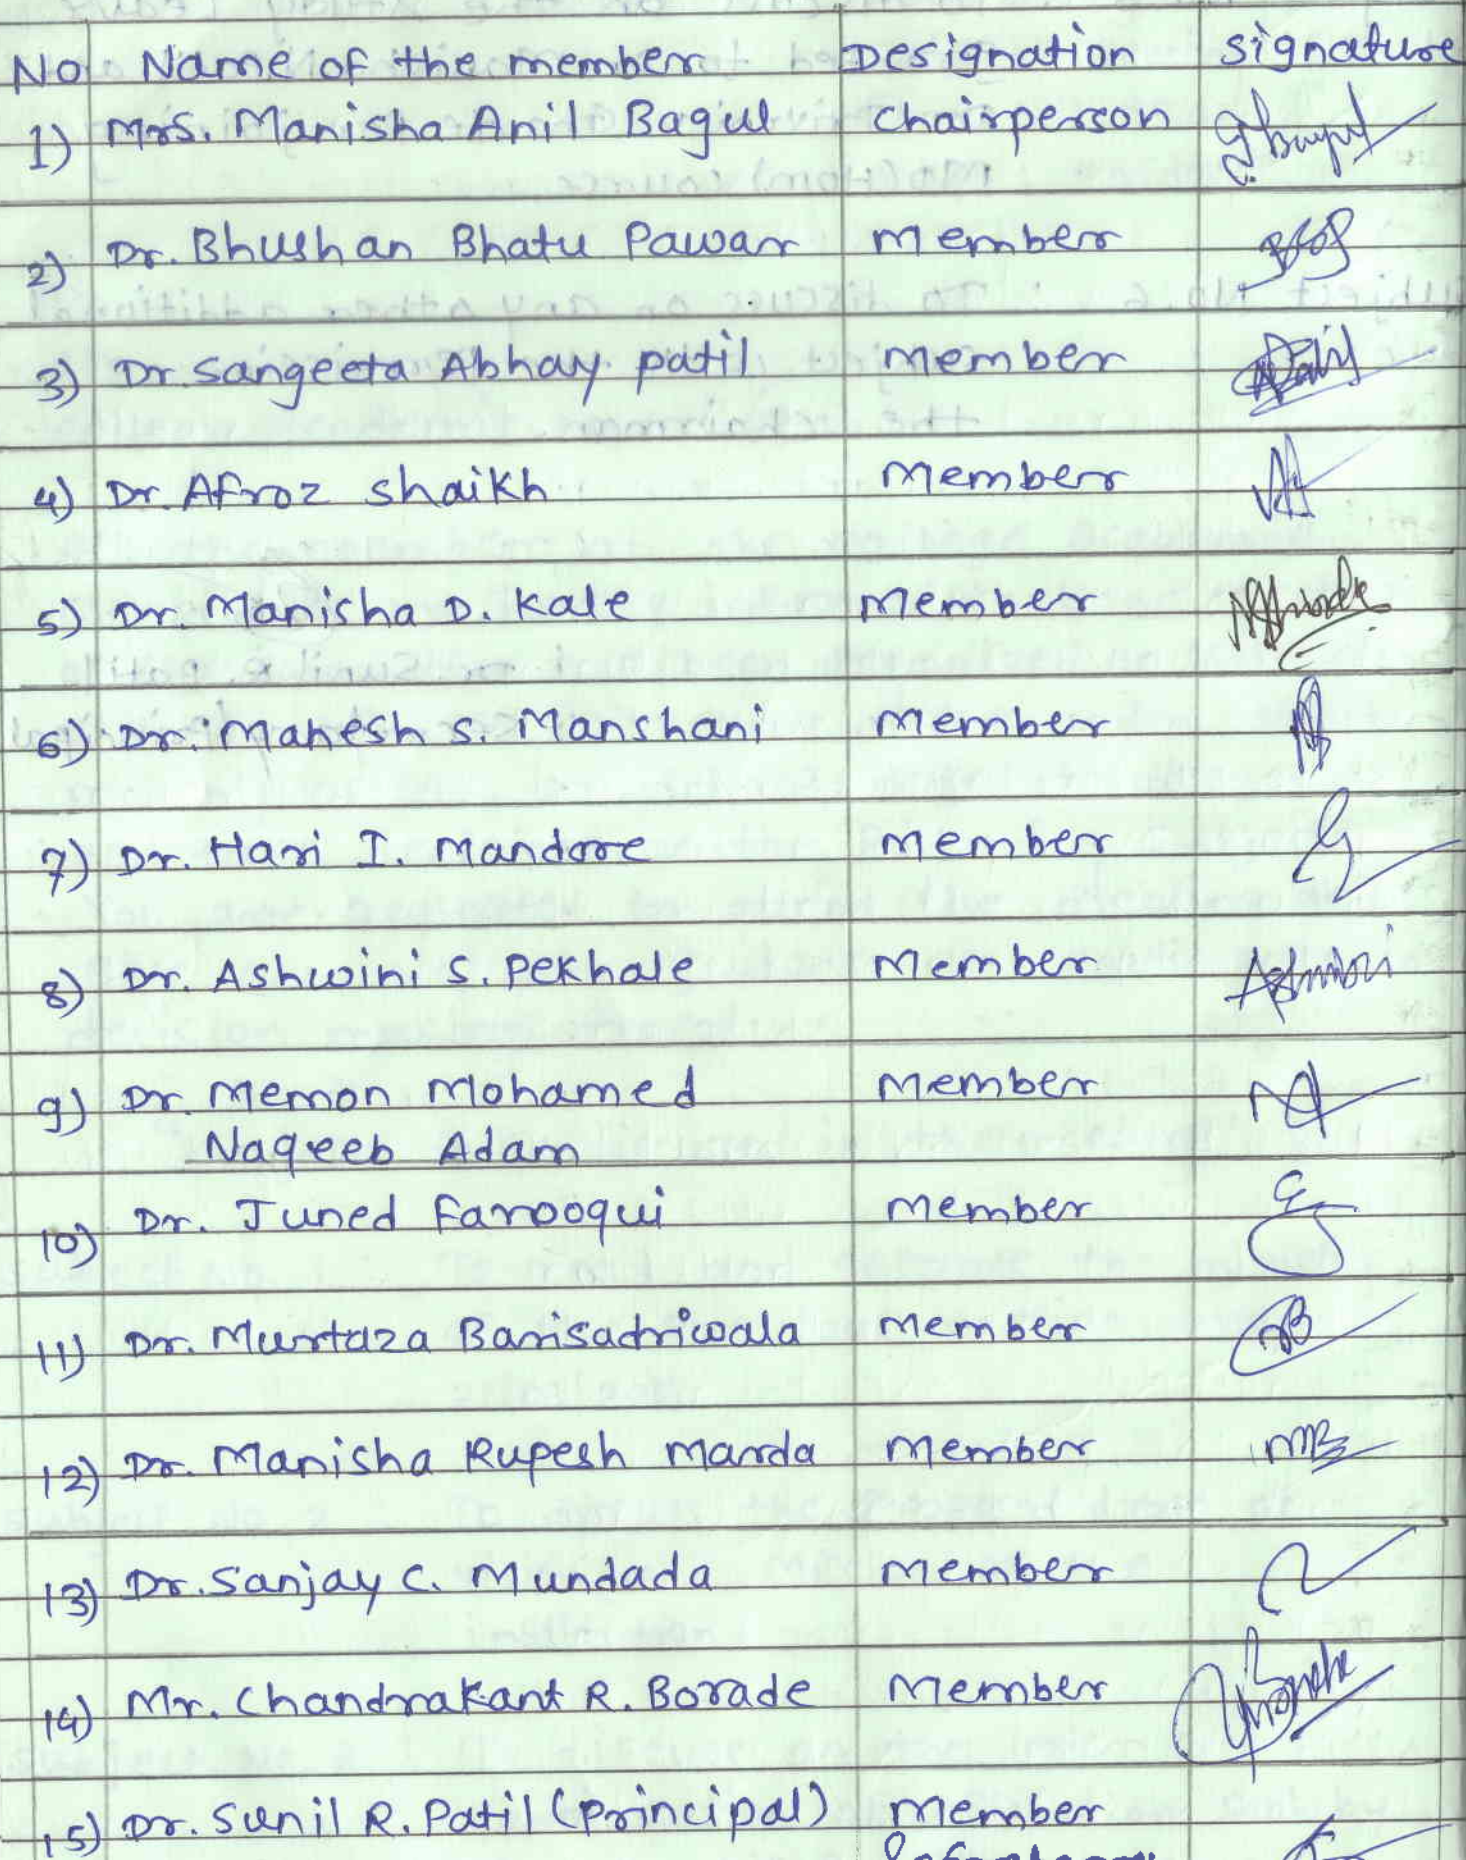 No Name of the member Designation signature
1) Mrs. Manisha Anil Bagul chairperson
2) Dr. Bhushan Bhatu Pawar member
3) Dr. Sangeeta Abhay patil member
4) Dr. Afroz shaikh member
5) Dr. Manisha D. Kale Member
6) Dr. Mahesh S. Manshani member
7) Dr. Hari I. Mandore member
8) Dr. Ashwini S. Pekhale Member Ashwini
9) Dr. Memon Mohamed member
Naqeeb Adam
10) Dr. Juned Farooqui member
11) Dr. Murtaza Barisadriwala member
12) Dr. Manisha Rupesh Marda member
13) Dr. Sanjay C. Mundada member
14) Mr. Chandrakant R. Borade Member
15) Dr. Sunil R. Patil (principal) member